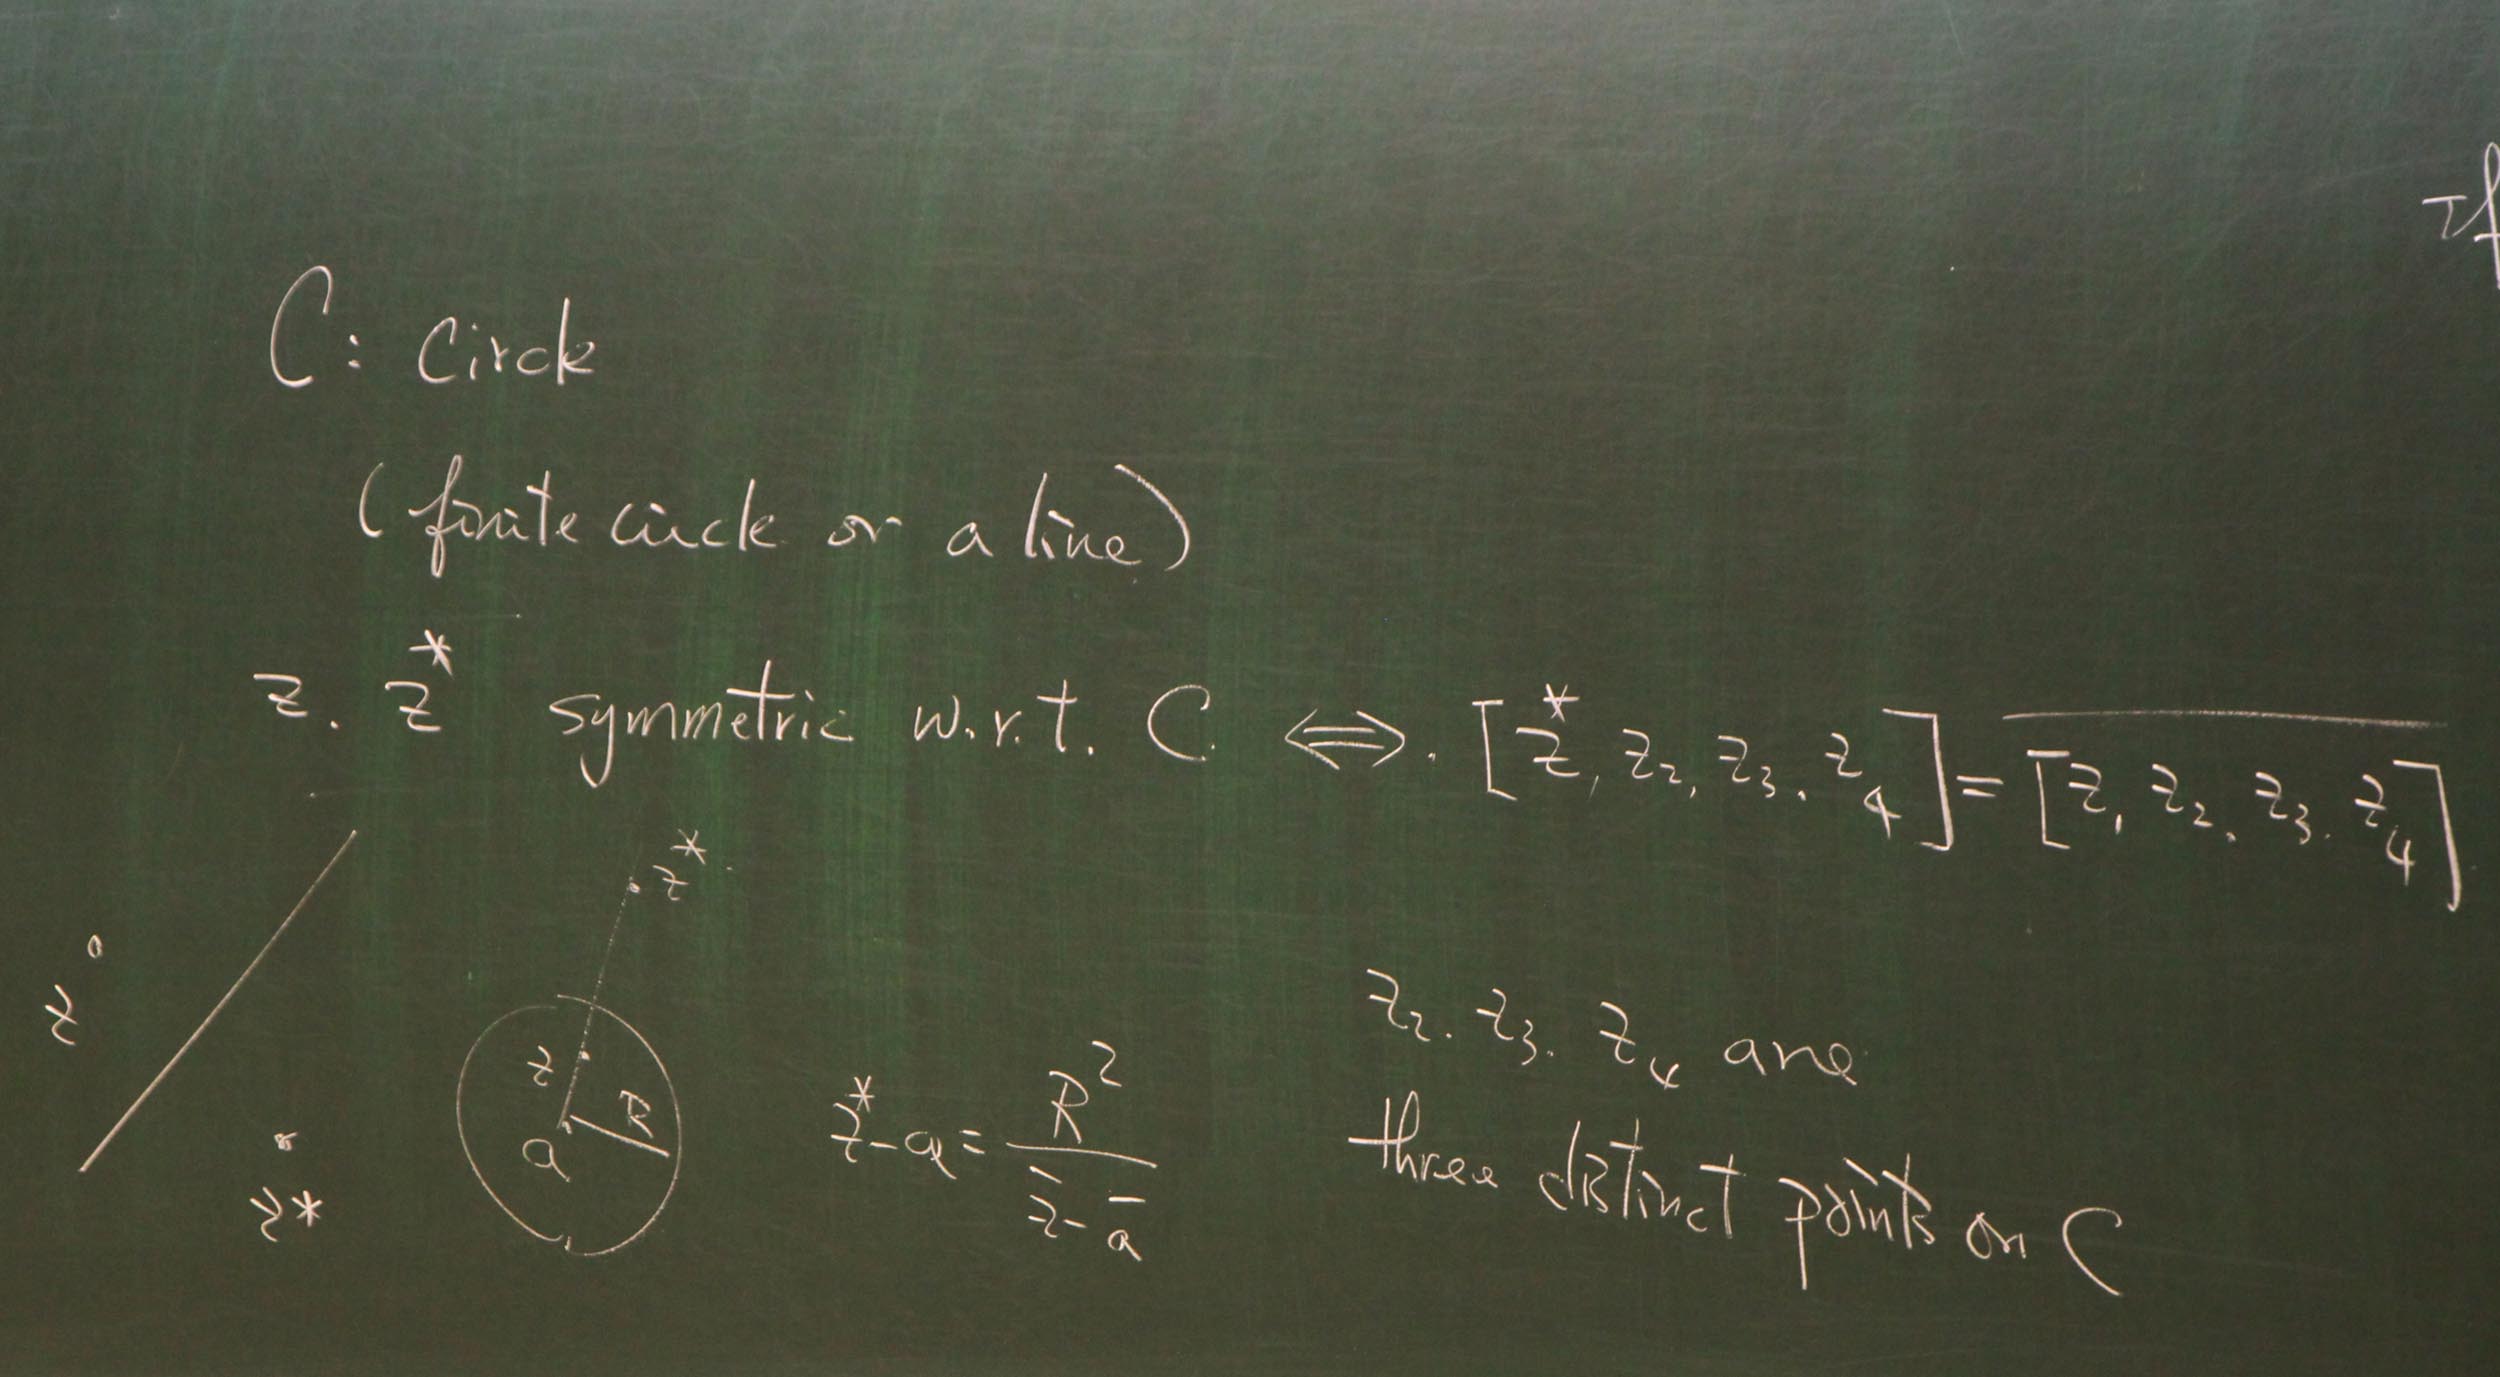 If
C: Circle
(finite circle or a line)
z. z* symmetric w.r.t. C. ⇔. [z*, z₂, z₃. z₄] = \overline{[z, z₂, z₃. z₄]}
z*
z
z
R
a
z*
z* - a = R² / (z̄ - ā)
z₂. z₃. z₄ are
three distinct points on C